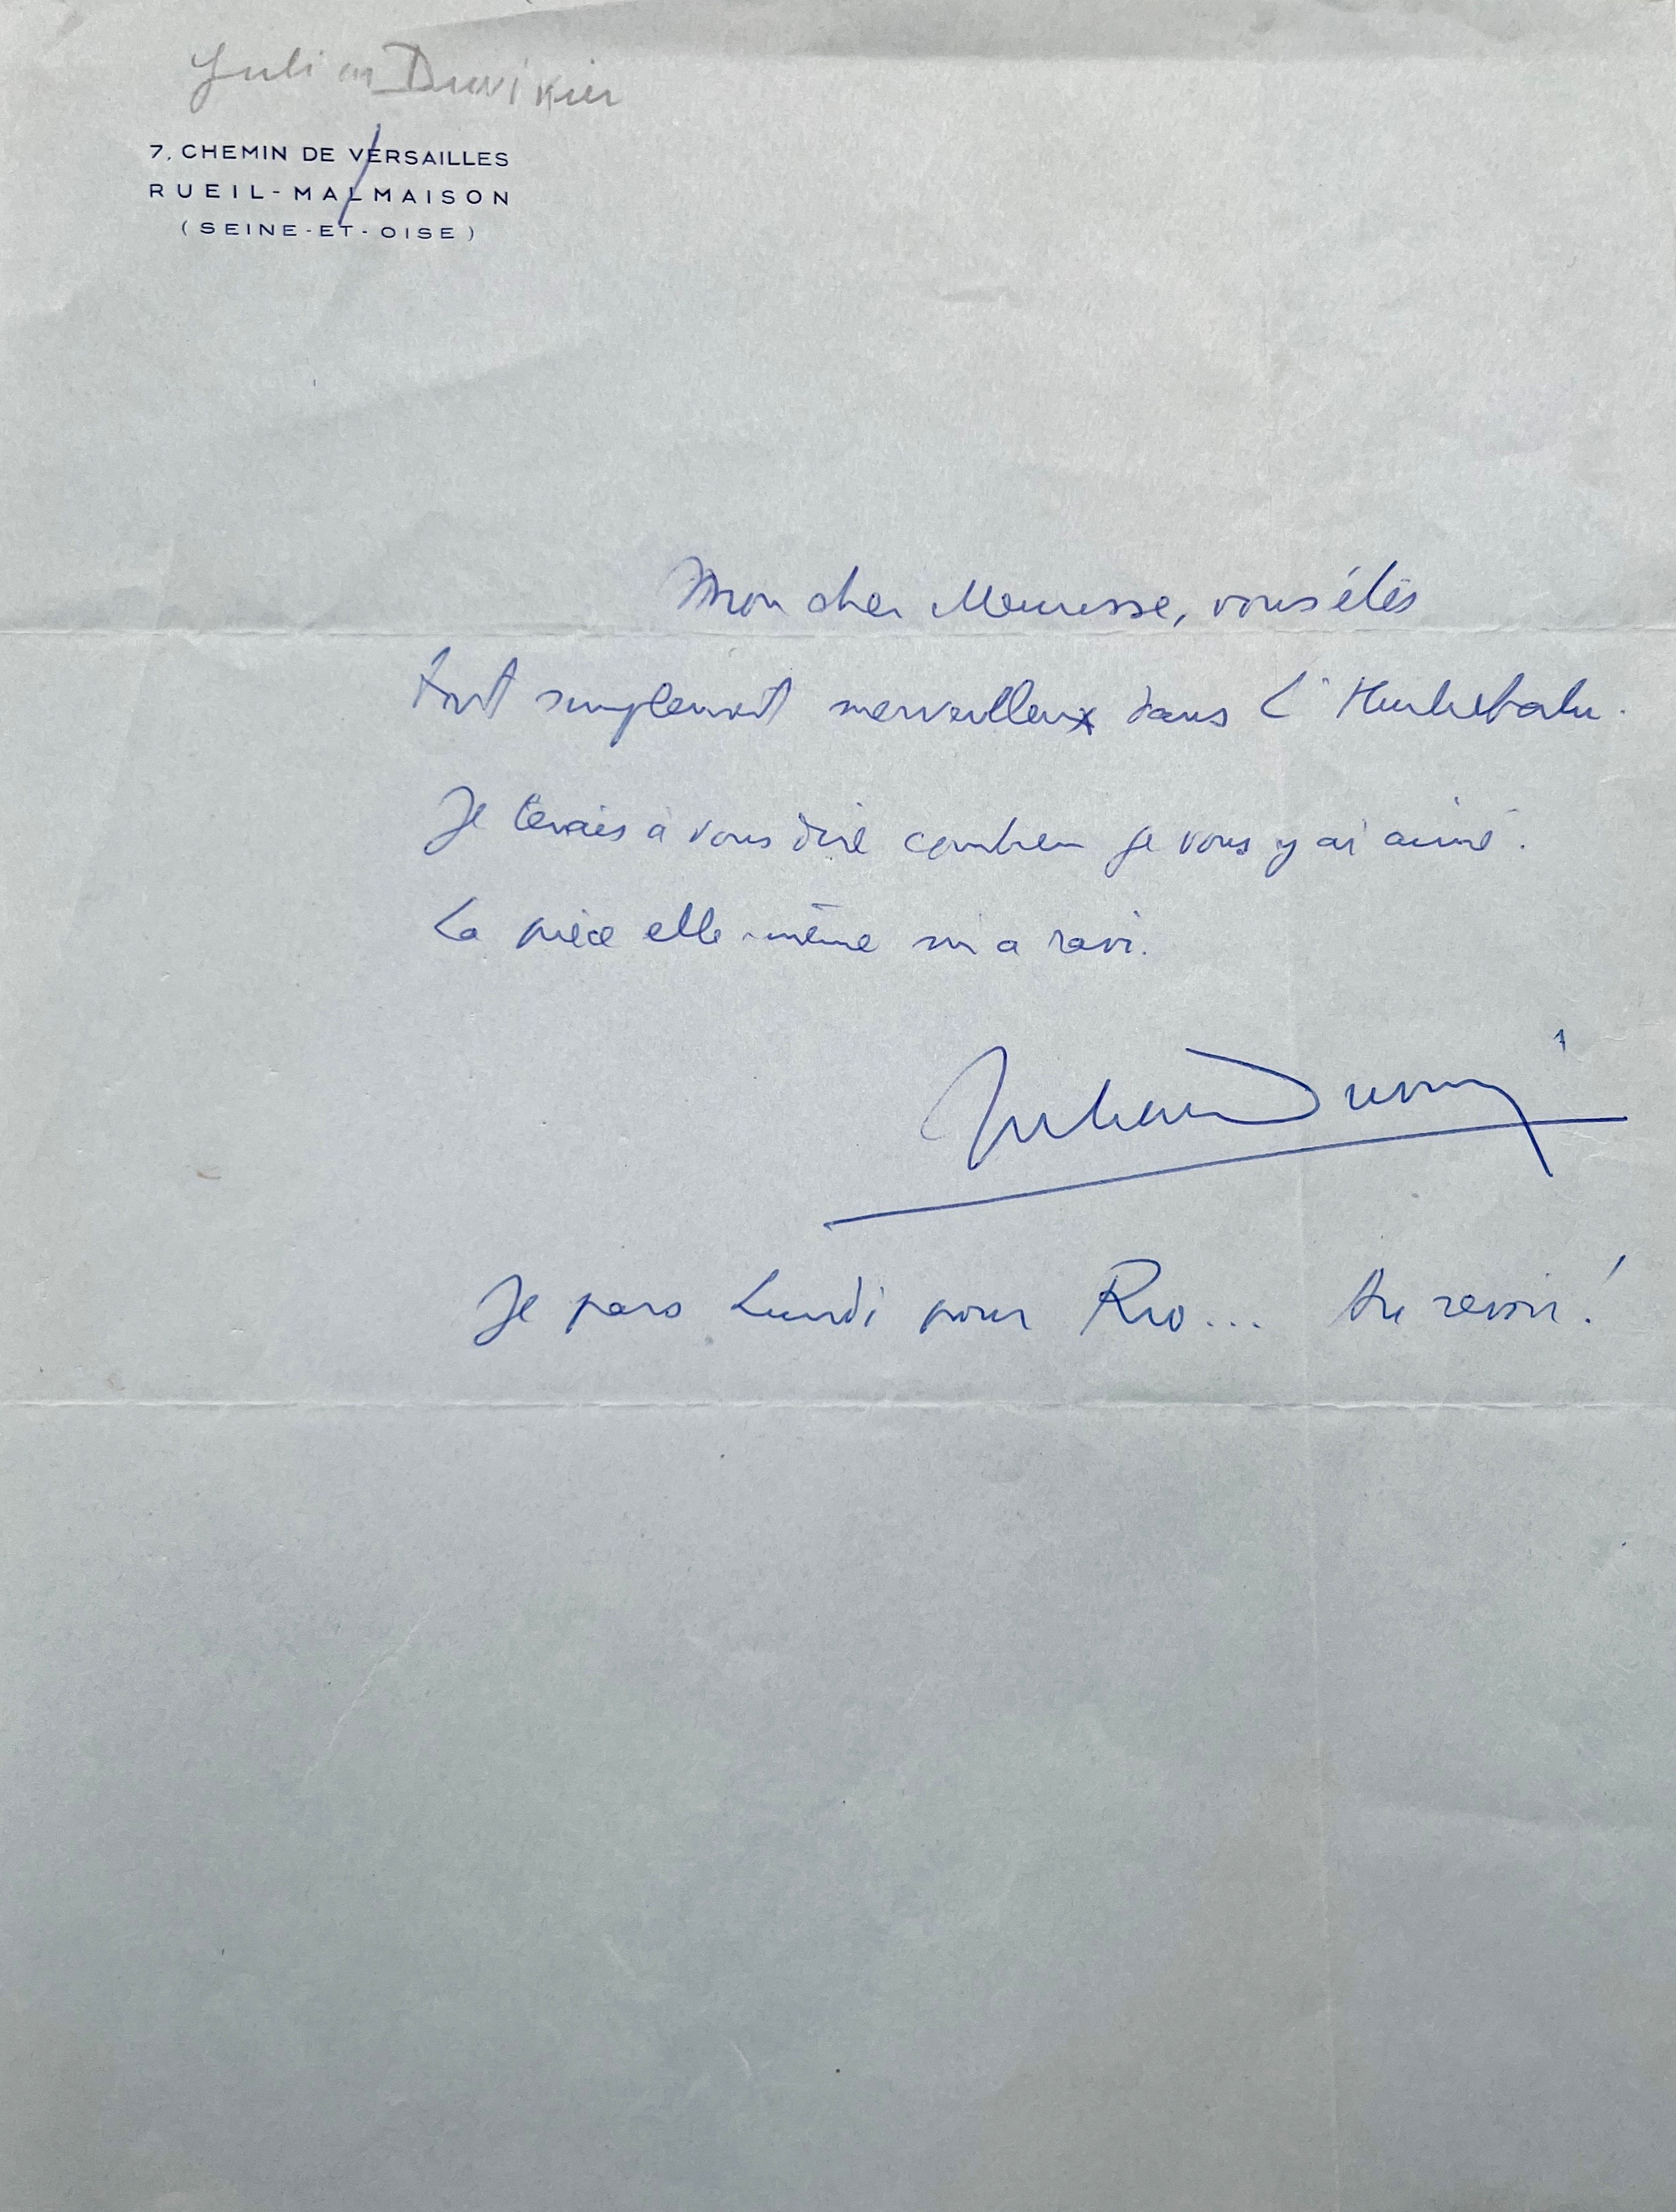 Julien Duvivier
7, CHEMIN DE VERSAILLES
RUEIL-MALMAISON
(SEINE-ET-OISE)
Mon cher Meurisse, vous êtes
tout simplement merveilleux dans L'Hurluberlu.
Je tenais à vous dire combien je vous y ai aimé.
La pièce elle-même m'a ravi.
Julien Duvivier
Je pars Lundi pour Rio... Au revoir!